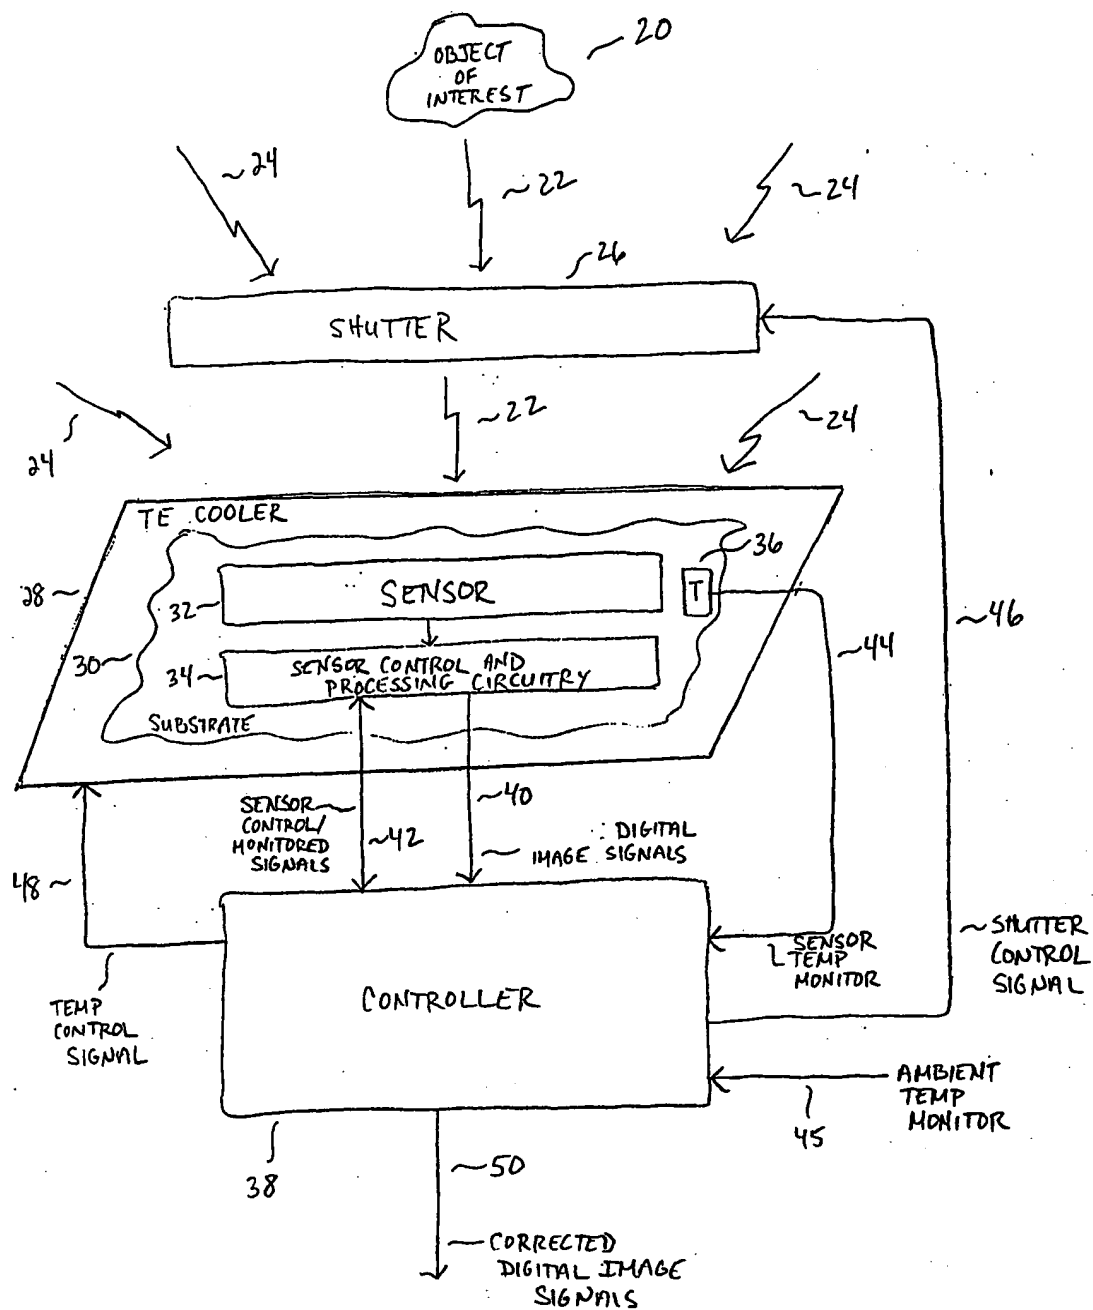 OBJECT
OF
INTEREST
20
24
22
24
26
SHUTTER
24
22
24
TE COOLER
36
28
32
SENSOR
T
46
30
34
SENSOR CONTROL AND
PROCESSING CIRCUITRY
44
SUBSTRATE
SENSOR
CONTROL/
MONITORED
SIGNALS
42
40
DIGITAL
IMAGE SIGNALS
48
TEMP
CONTROL
SIGNAL
CONTROLLER
SENSOR
TEMP
MONITOR
SHUTTER
CONTROL
SIGNAL
AMBIENT
TEMP
MONITOR
45
38
50
CORRECTED
DIGITAL IMAGE
SIGNALS